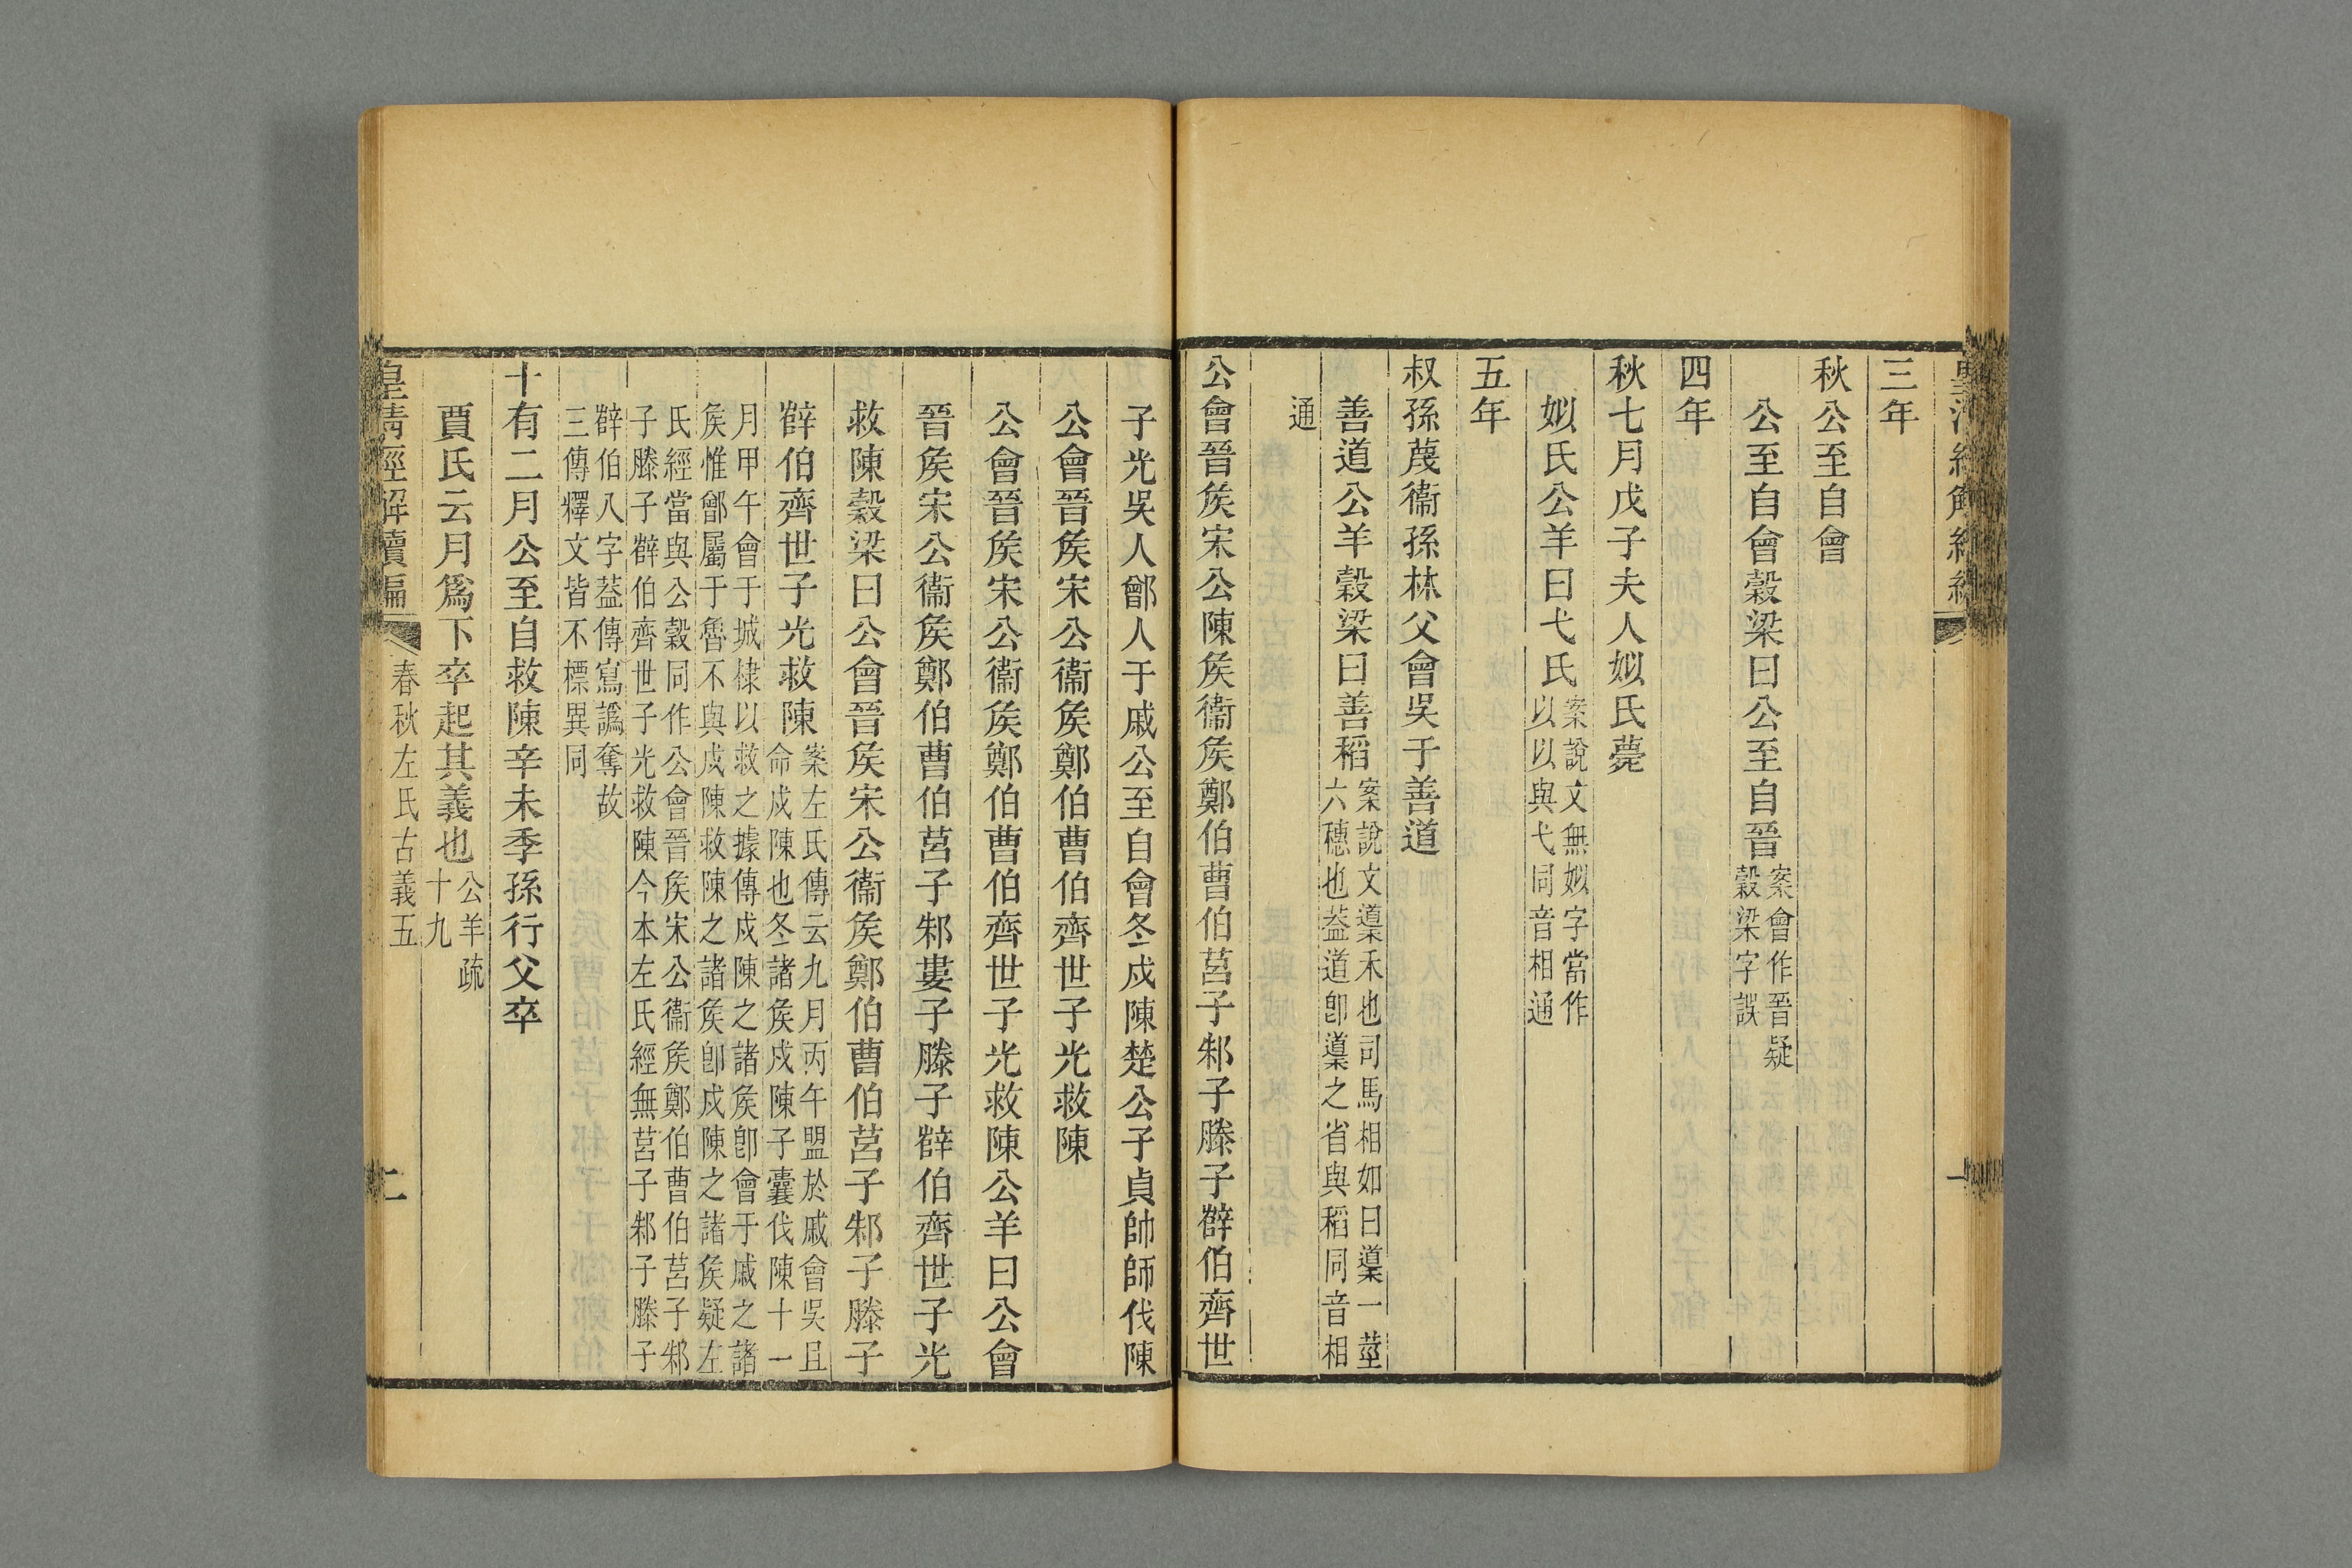 三年
秋公至自會
公至自會穀梁曰公至自晉案會作晉疑
穀梁字誤
四年
秋七月戊子夫人姒氏薨
姒氏公羊曰弋氏案說文無姒字當作
以以與弋同音相通
五年
叔孫蔑衞孫林父會吳于善道
善道公羊穀梁曰善稻案說文䆃禾也司馬相如曰䆃一莖
六穗也葢道卽䆃之省與稻同音相
通
公會晉矦宋公陳矦衞矦鄭伯曹伯莒子邾子滕子薛伯齊世
子光吳人鄫人于戚公至自會冬戍陳楚公子貞帥師伐陳
公會晉矦宋公衞矦鄭伯曹伯齊世子光救陳
公會晉矦宋公衞矦鄭伯曹伯齊世子光救陳公羊曰公會
晉矦宋公衞矦鄭伯曹伯莒子邾婁子滕子薛伯齊世子光
救陳穀梁曰公會晉矦宋公衞矦鄭伯曹伯莒子邾子滕子
薛伯齊世子光救陳案左氏傳云九月丙午盟於戚會吳且
命戍陳也冬諸矦戍陳子囊伐陳十一
月甲午會于城棣以救之據傳戍陳之諸矦卽會于戚之諸
矦惟鄫屬于魯不與戍陳救陳之諸矦卽戍陳之諸矦疑左
氏經當與公穀同作公會晉矦宋公衞矦鄭伯曹伯莒子邾
子滕子薛伯齊世子光救陳今本左氏經無莒子邾子滕子
薛伯八字葢傳寫譌奪故
三傳釋文皆不標異同
十有二月公至自救陳辛未季孫行父卒
賈氏云月爲下卒起其義也公羊疏
十九
皇淸經解續編
春秋左氏古義五
二